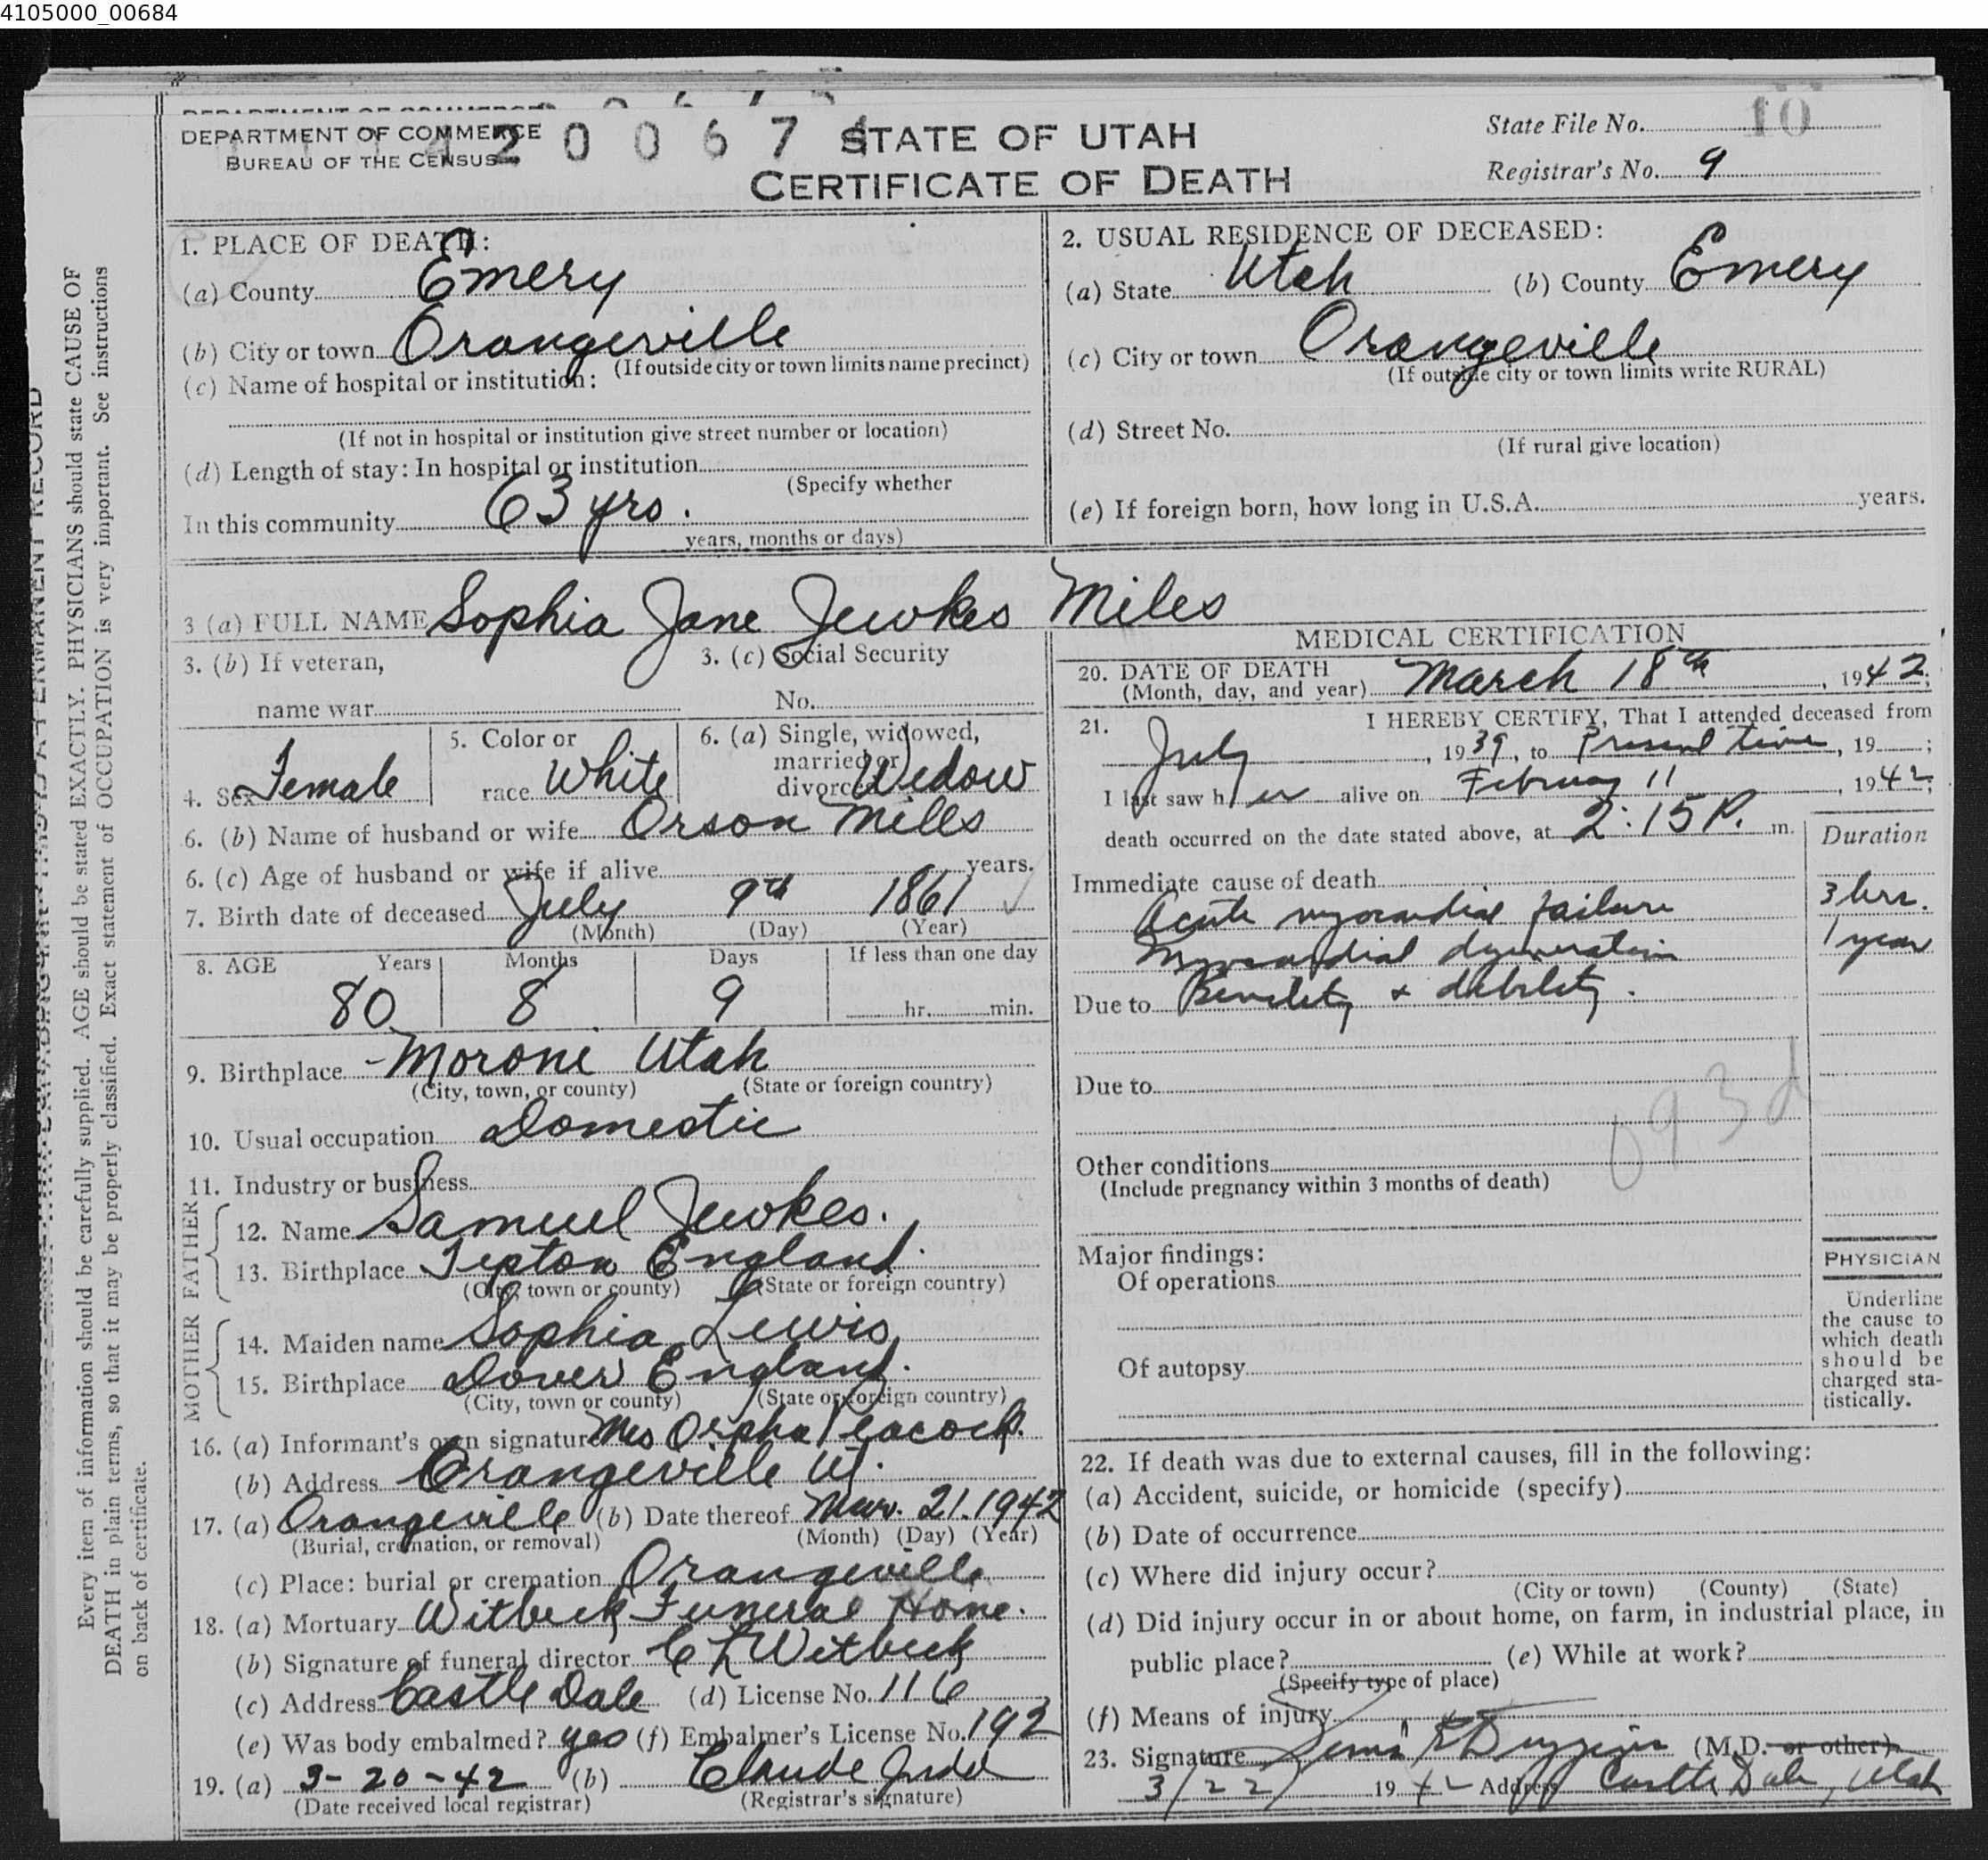 4105000_00684
DEPARTMENT OF COMMERCE
BUREAU OF THE CENSUS
2 0 0 6 7 4
STATE OF UTAH
CERTIFICATE OF DEATH
State File No. 10
Registrar's No. 9
1. PLACE OF DEATH:
(a) County Emery
(b) City or town Orangeville
(If outside city or town limits name precinct)
(c) Name of hospital or institution:
(If not in hospital or institution give street number or location)
(d) Length of stay: In hospital or institution
(Specify whether
In this community 63 yrs.
years, months or days)
2. USUAL RESIDENCE OF DECEASED:
(a) State Utah (b) County Emery
(c) City or town Orangeville
(If outside city or town limits write RURAL)
(d) Street No.
(If rural give location)
(e) If foreign born, how long in U.S.A. years.
3 (a) FULL NAME Sophia Jane Jewkes Miles
3. (b) If veteran,
name war
3. (c) Social Security
No.
4. Sex Female
5. Color or
race White
6. (a) Single, widowed,
married or
divorced Widow
6. (b) Name of husband or wife Orson Miles
6. (c) Age of husband or wife if alive years.
7. Birth date of deceased July 9th 1861
(Month) (Day) (Year)
8. AGE Years Months Days If less than one day
80 8 9 hr. min.
9. Birthplace Moroni Utah
(City, town, or county) (State or foreign country)
10. Usual occupation Domestic
11. Industry or business
FATHER
12. Name Samuel Jewkes.
13. Birthplace Tipton England.
(City, town or county) (State or foreign country)
MOTHER
14. Maiden name Sophia Lewis
15. Birthplace Dover England.
(City, town or county) (State or foreign country)
16. (a) Informant's own signature Mrs Orpha Peacock.
(b) Address Orangeville Ut.
17. (a) Orangeville (b) Date thereof Mar. 21. 1942
(Burial, cremation, or removal) (Month) (Day) (Year)
(c) Place: burial or cremation Orangeville
18. (a) Mortuary Witbeck Funeral Home.
(b) Signature of funeral director C L Witbeck
(c) Address Castle Dale (d) License No. 116
(e) Was body embalmed? yes (f) Embalmer's License No. 192
19. (a) 3-20-42 (b) Claude Judd
(Date received local registrar) (Registrar's signature)
MEDICAL CERTIFICATION
20. DATE OF DEATH
(Month, day, and year) March 18th, 1942;
21. I HEREBY CERTIFY, That I attended deceased from
July, 1939, to Present time, 19 ;
I last saw her alive on February 11, 1942;
death occurred on the date stated above, at 2:15 P. m.
Duration
Immediate cause of death
Acute myocardial failure 3 hrs.
Myocardial degeneration 1 year
Due to Senility + debility.
Due to
093d
Other conditions
(Include pregnancy within 3 months of death)
Major findings:
Of operations
Of autopsy
PHYSICIAN
Underline
the cause to
which death
should be
charged sta-
tistically.
22. If death was due to external causes, fill in the following:
(a) Accident, suicide, or homicide (specify)
(b) Date of occurrence
(c) Where did injury occur?
(City or town) (County) (State)
(d) Did injury occur in or about home, on farm, in industrial place, in
public place? (e) While at work?
(Specify type of place)
(f) Means of injury
23. Signature Duggins (M.D. or other)
3/22/ 1942 Address Castle Dale, Utah
Every item of information should be carefully supplied. AGE should be stated EXACTLY. PHYSICIANS should state CAUSE OF
DEATH in plain terms, so that it may be properly classified. Exact statement of OCCUPATION is very important. See instructions
on back of certificate.